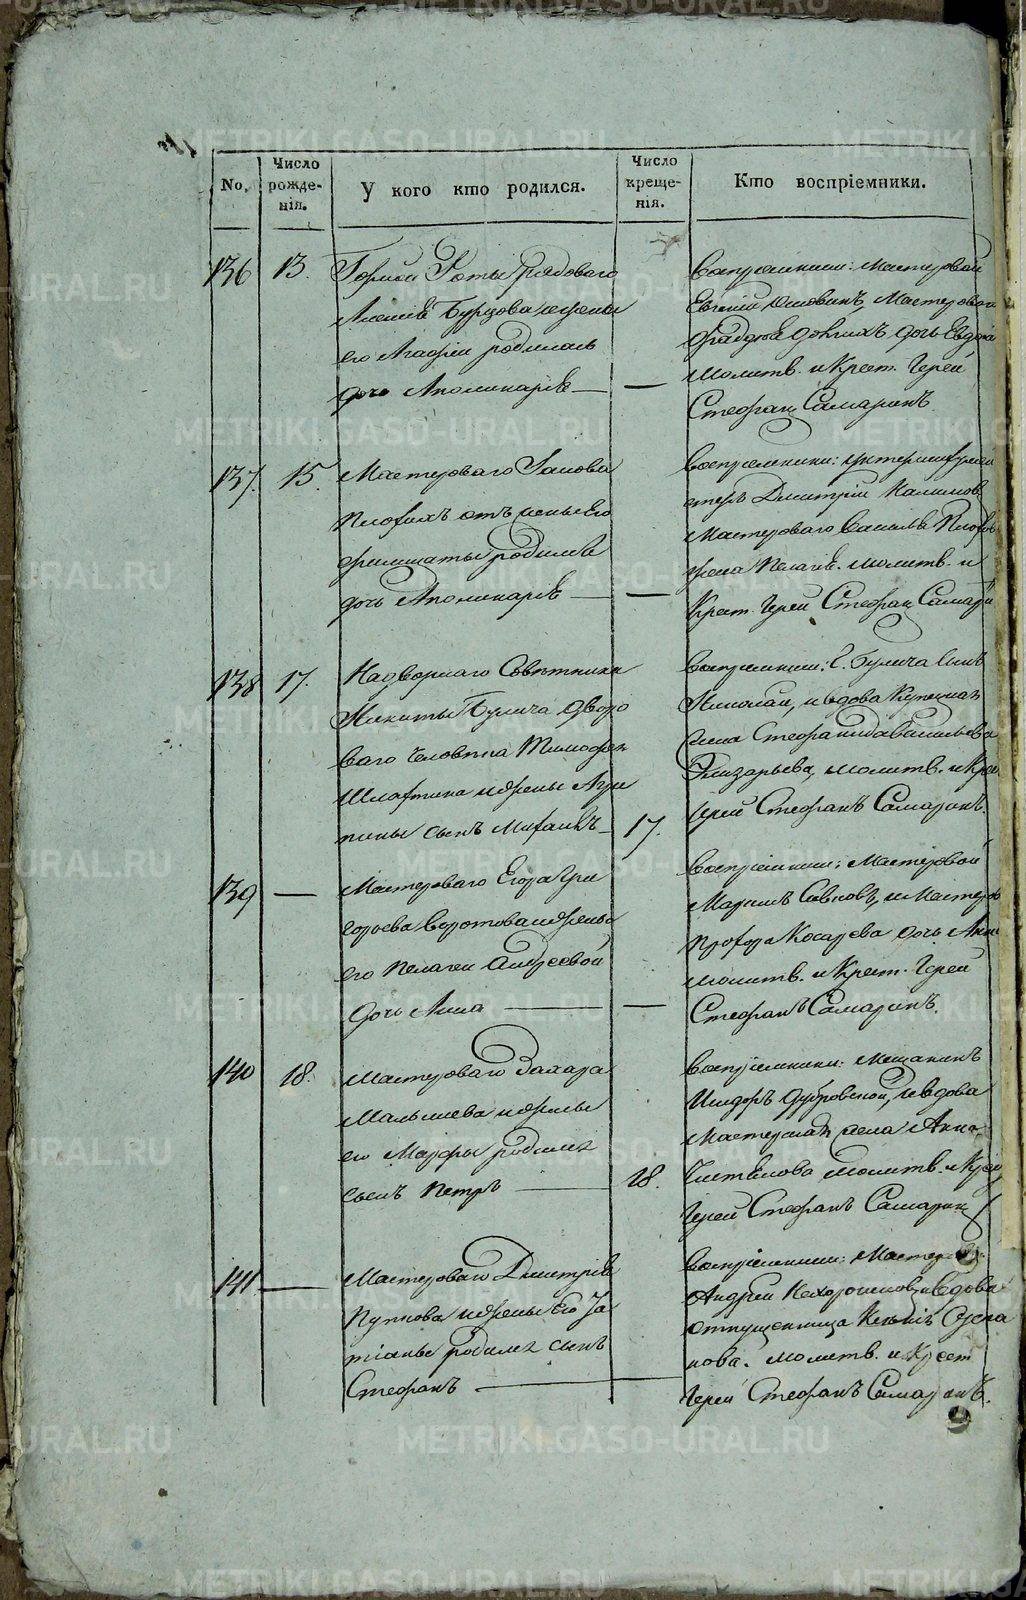 No.
Число рожде-нія.
У кого кто родился.
Число креще-нія.
Кто воспріемники.
136
13.
Горной Роты рядоваго
Алексѣя Бурцова и жены
его Агафіи родилась
дочь Аполинарія
Воспріемники: Мастеровой
Евгеній, Мастероваго
дочь Евдокія
Молитв. и Крест. Іерей
Стефанъ Самаринъ
137.
15.
Мастероваго Іакова
Плохихъ отъ жены его
родилась
дочь Аполинарія
Воспріемники:
Дмитрій
Мастероваго Василья
жена Пелагія. Молитв. и
Крест. Іерей Стефанъ Самари
138
17.
Надворнаго Совѣтника
Никиты Булича дворо
ваго человѣка Тимофея
и жены Агри
пины сынъ Михаилъ
17.
Воспріемники: Г. Булича сынъ
Николай, и вдова Купецкая
жена Стефанида Васильева
Елизарьева, молитв. и Крес
Іерей Стефанъ Самаринъ.
139
Мастероваго Егора Гри
горьева Воротова и жены
его Пелагеи Андреевой
дочь Анна
Воспріемники: Мастеровой
и Мастеров
Прохора Косарева дочь Анна
молитв. и Крест. Іерей
Стефанъ Самаринъ.
140
18.
Мастероваго Захара
Малышева и жены
его Марфы родился
сынъ Петръ
18.
Воспріемники: Мещанинъ
Исидоръ Дубровской, и вдова
Мастерская жена Анна
молитв. и Крес
Іерей Стефанъ Самаринъ
141
Мастероваго Дмитрія
Пупкова и жены его Та
тіаны родился сынъ
Стефанъ
Воспріемники: Мастеров
Андрей Нехорошковъ и вдова
отпущенница Ксенія
нова. молитв. и Крест
Іерей Стефанъ Самаринъ.
METRIKI.GASO-URAL.RU